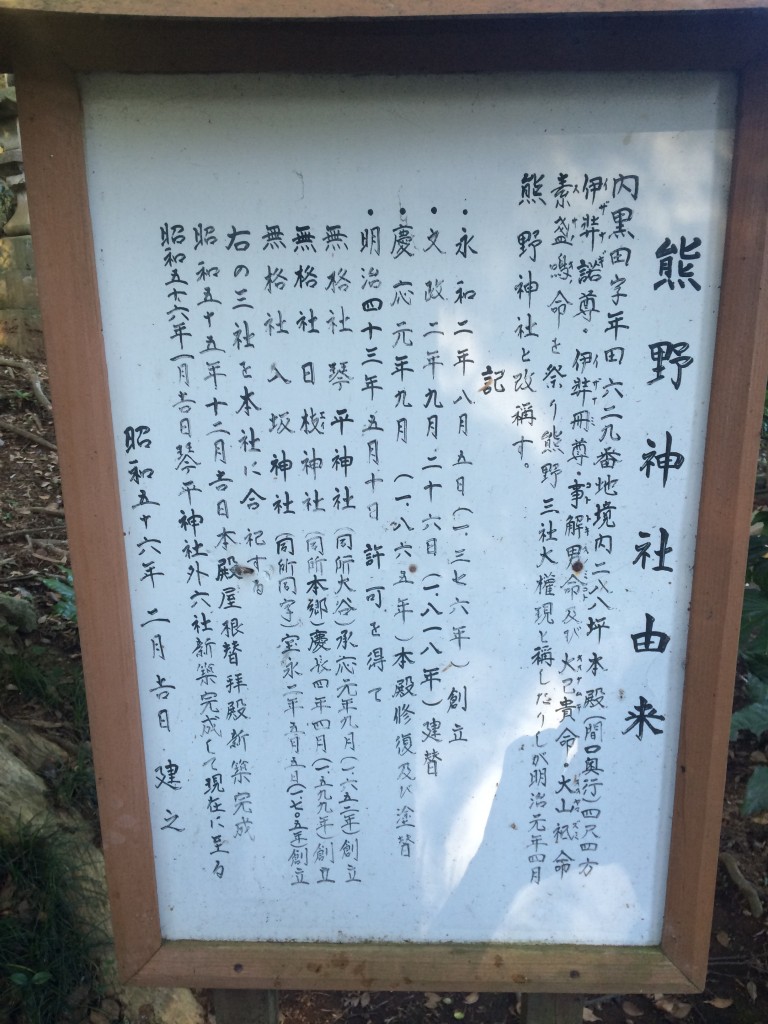 熊野神社由来
内黒田字年田六二九番地境内二八八坪本殿(間口奥行)四尺四方
伊弉諾尊・伊弉冊尊・事解男命及び大己貴命・大山祇命
素盞嗚命を祭り熊野三社大權現と称したりしが明治元年四月
熊野神社と改稱す。
記
・永和二年八月五日(一、三七六年)創立
・文政二年九月二十六日(一、八一八年)建替
・慶応元年九月(一、八六五年)本殿修復及び塗替
・明治四十三年五月十日許可を得て
無格社琴平神社(同所大谷)承応元年九月(一、六五二年)創立
無格社日枝神社(同所本郷)慶长四年四月(一五九九年)創立
無格社入坂神社(同所同字)宝永二年五月五日(一七〇五年)創立
右の三社を本社に合祀する
昭和五十五年十二月吉日本殿屋根替拝殿新築完成
昭和五十六年一月吉日琴平神社外六社新築完成して現在に至る
昭和五十六年二月吉日建之